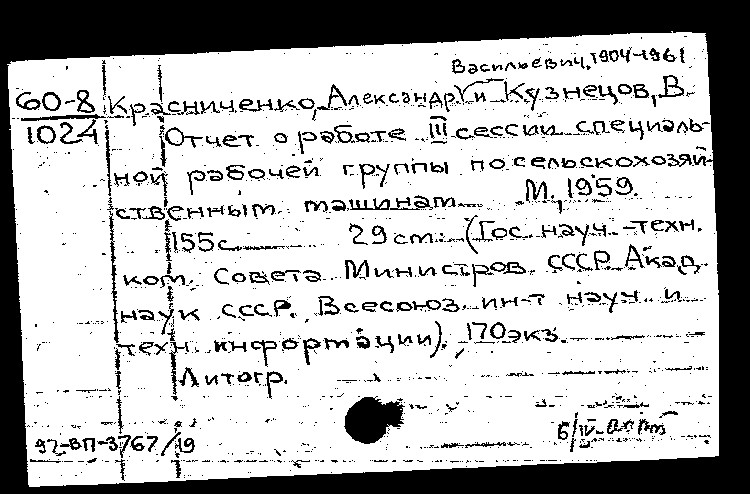 Васильевич, 1904-1961
60-8 Красниченко, Александр) и Кузнецов, В.
1024 Отчет о работе III сессии специаль-
ной рабочей группы по сельскохозяй-
ственным машинам. М., 1959.
155 с. 29 см. (Гос. науч.-техн.
ком. Совета Министров СССР. Акад.
наук СССР. Всесоюз. ин-т науч. и
техн. информации). 170 экз.
Литогр.
92-ВП-3767/19 Б/IV-